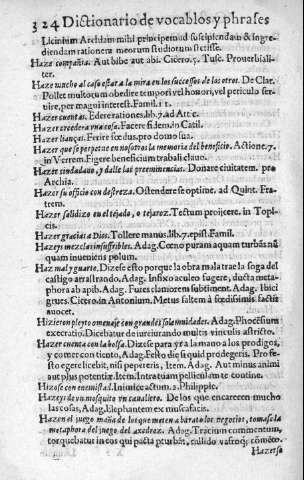 324 Dictionario de vocablos y phrases
Licinium Archiam mihi principem ad suscipiendam & ingre-
diendam rationem meorum studiorum fuisse.
Haze compañia. Aut bibe aut abi. Cicero.5. Tusc. Prouerbiali-
ter.
Haze mucho al caso estar a la mira en los successos de los otros. De Clar.
Pollet multorum obedire tempori vel honori, vel periculo ser-
uire, per magni interest. Famil.
Hazer cuentas. Ede rationes. lib.7. ad Attic.
Hazer creedera vna cosa. Facere fidem. in Catil.
Hazer liança. Ferire foedus. pro domo sua.
Hazer que se perpetue en nosotros la memoria del beneficio. Actione.7.
in Verrem. Figere beneficium trabali clauo.
Hazer ciudadano, y dalle las preeminencias. Donare ciuitatem. pro
Archia.
Hazer su officio con destreza. Ostendere se optime. ad Quint. Fra-
trem.
Hazer salidizo en el tejado, o tejaroz. Tectum proijcere. in Topi-
cis.
Hazer gracias a Dios. Tollere manus. lib.7. epist. Famil.
Hazer y mezclas insufribles. Adag. Coeno puram aquam turbans nū
quam inueniens polum.
Haz mal y guarte. Dizese esto porque la obra mala trae la soga del
castigo arrastrando. Adag. Infixo aculeo fugere, ducta meta-
phora ab apib. Adag. Fures clamorem subtiment. Adag. Ibici
grues. Cicero. in Antonium. Metus saltem à foedissimis factis
auocet.
Hizieron pleyto omenaje con grandes solennidades. Adag. Phocensium
execratio. Dicebatur de iureiurando multis vinculis astricto.
Hazer cuenta con la bolsa. Dizese para yr a la mano a los prodigos,
y comer con tiento, Adag. Festo die si quid prodegeris. Pro fe-
sto egere licebit, nisi pepercris, Item. Adag. Aut minus animi
aut plus potentiæ. Item. Intra tuam pelliculam te contine.
Hizose con enemistad. Inimice actum. 2. Philippic.
Hazeys de vn mosquito vn cauallero. De los que encarecen mucho
las cosas, Adag. Elephantem ex musca facis.
Hazen el juego maña de los que meten a barato los negocios, tomase la
metaphora del juego del axedrez. Adag. Tricium commentum,
torquebatur in eos qui pacta
Hazerse